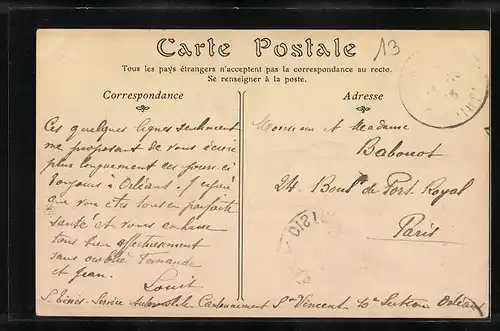 Carte Postale
13
Tous les pays étrangers n'acceptent pas la correspondance au recto.
Se renseigner à la poste.
Correspondance
Ces quelques lignes seulement
me proposant de vous écrire
plus longuement ces jours-ci
Toujours à Orléans. J'espère
que vous êtes tous en parfaite
santé et vous embrasse
tous bien affectueusement
sans oublier Fernande
et Jean.
Louis
Adresse
Monsieur et Madame
Babouot
24 Boul de Port Royal
Paris
Service Automobile Cantonnement St Vincent 10e Section Orléans